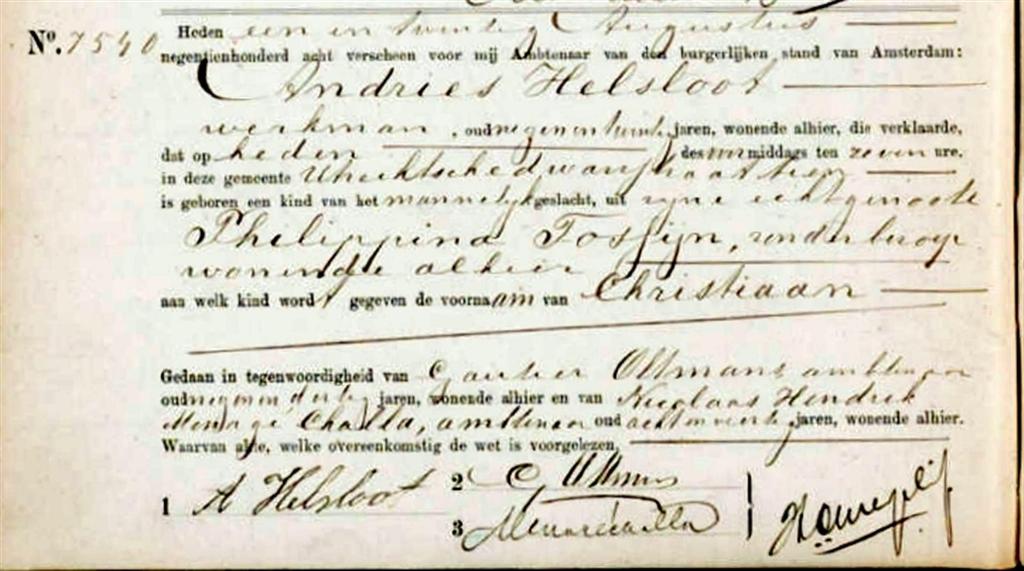 Nº. 7540 Heden een en twintig Augustus
negentienhonderd acht verscheen voor mij Ambtenaar van den burgerlijken stand van Amsterdam:
Andries Helsloot
werkman, oud negenentwintig jaren, wonende alhier, die verklaarde,
dat op heden des voormiddags ten zeven ure,
in deze gemeente Utrechtschedwarsstraat tien
is geboren een kind van het mannelijk geslacht, uit zijne echtgenoote
Philippina Tossijn, zonder beroep
wonende alhier
aan welk kind wordt gegeven de voornaam van Christiaan
Gedaan in tegenwoordigheid van Oltmans, ambtenaar
oud negenendertig jaren, wonende alhier en van Nicolaas Hendrik
Challa, ambtenaar oud achtenveertig jaren, wonende alhier.
Waarvan akte, welke overeenkomstig de wet is voorgelezen,
1 A Helsloot 2 C Oltmans
3